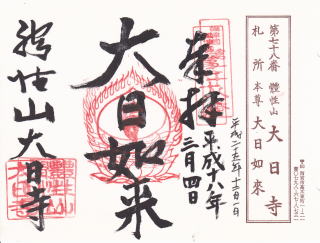 第七十八番 體性山 大日寺
札所 本尊 大日如來
奉拝
平成十八年
三月四日
平成二十五年十二月一日
大日如来
體性山大日寺